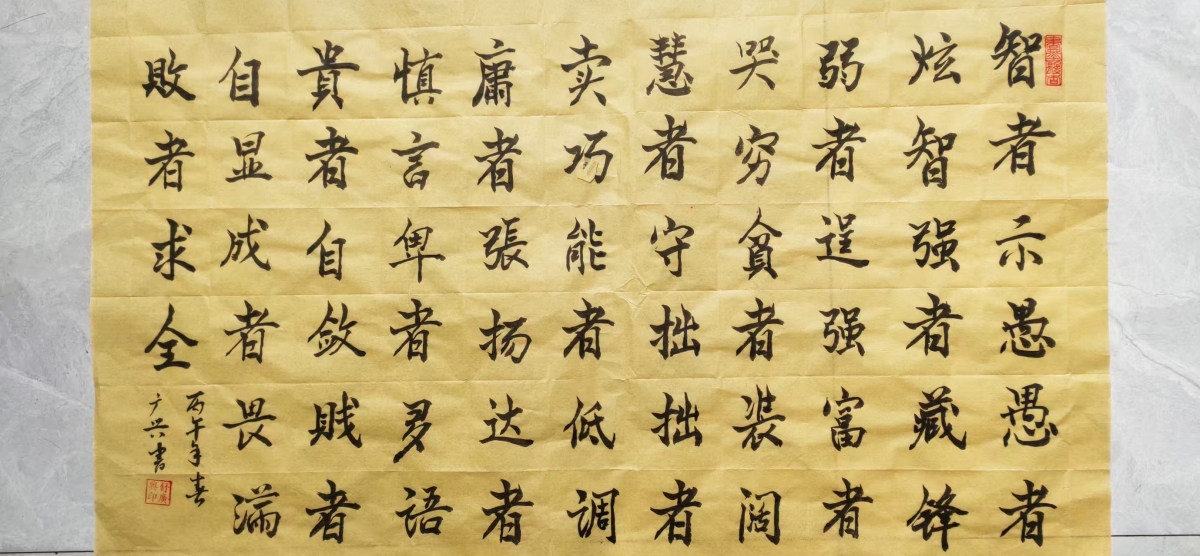 智者示愚愚者
炫智强者藏锋
弱者逞强富者
哭穷貪者装阔
慧者守拙拙者
卖巧能者低调
庸者張扬达者
慎言卑者多语
貴者自敛賎者
自显成者畏满
敗者求全
丙午年春
广兴書